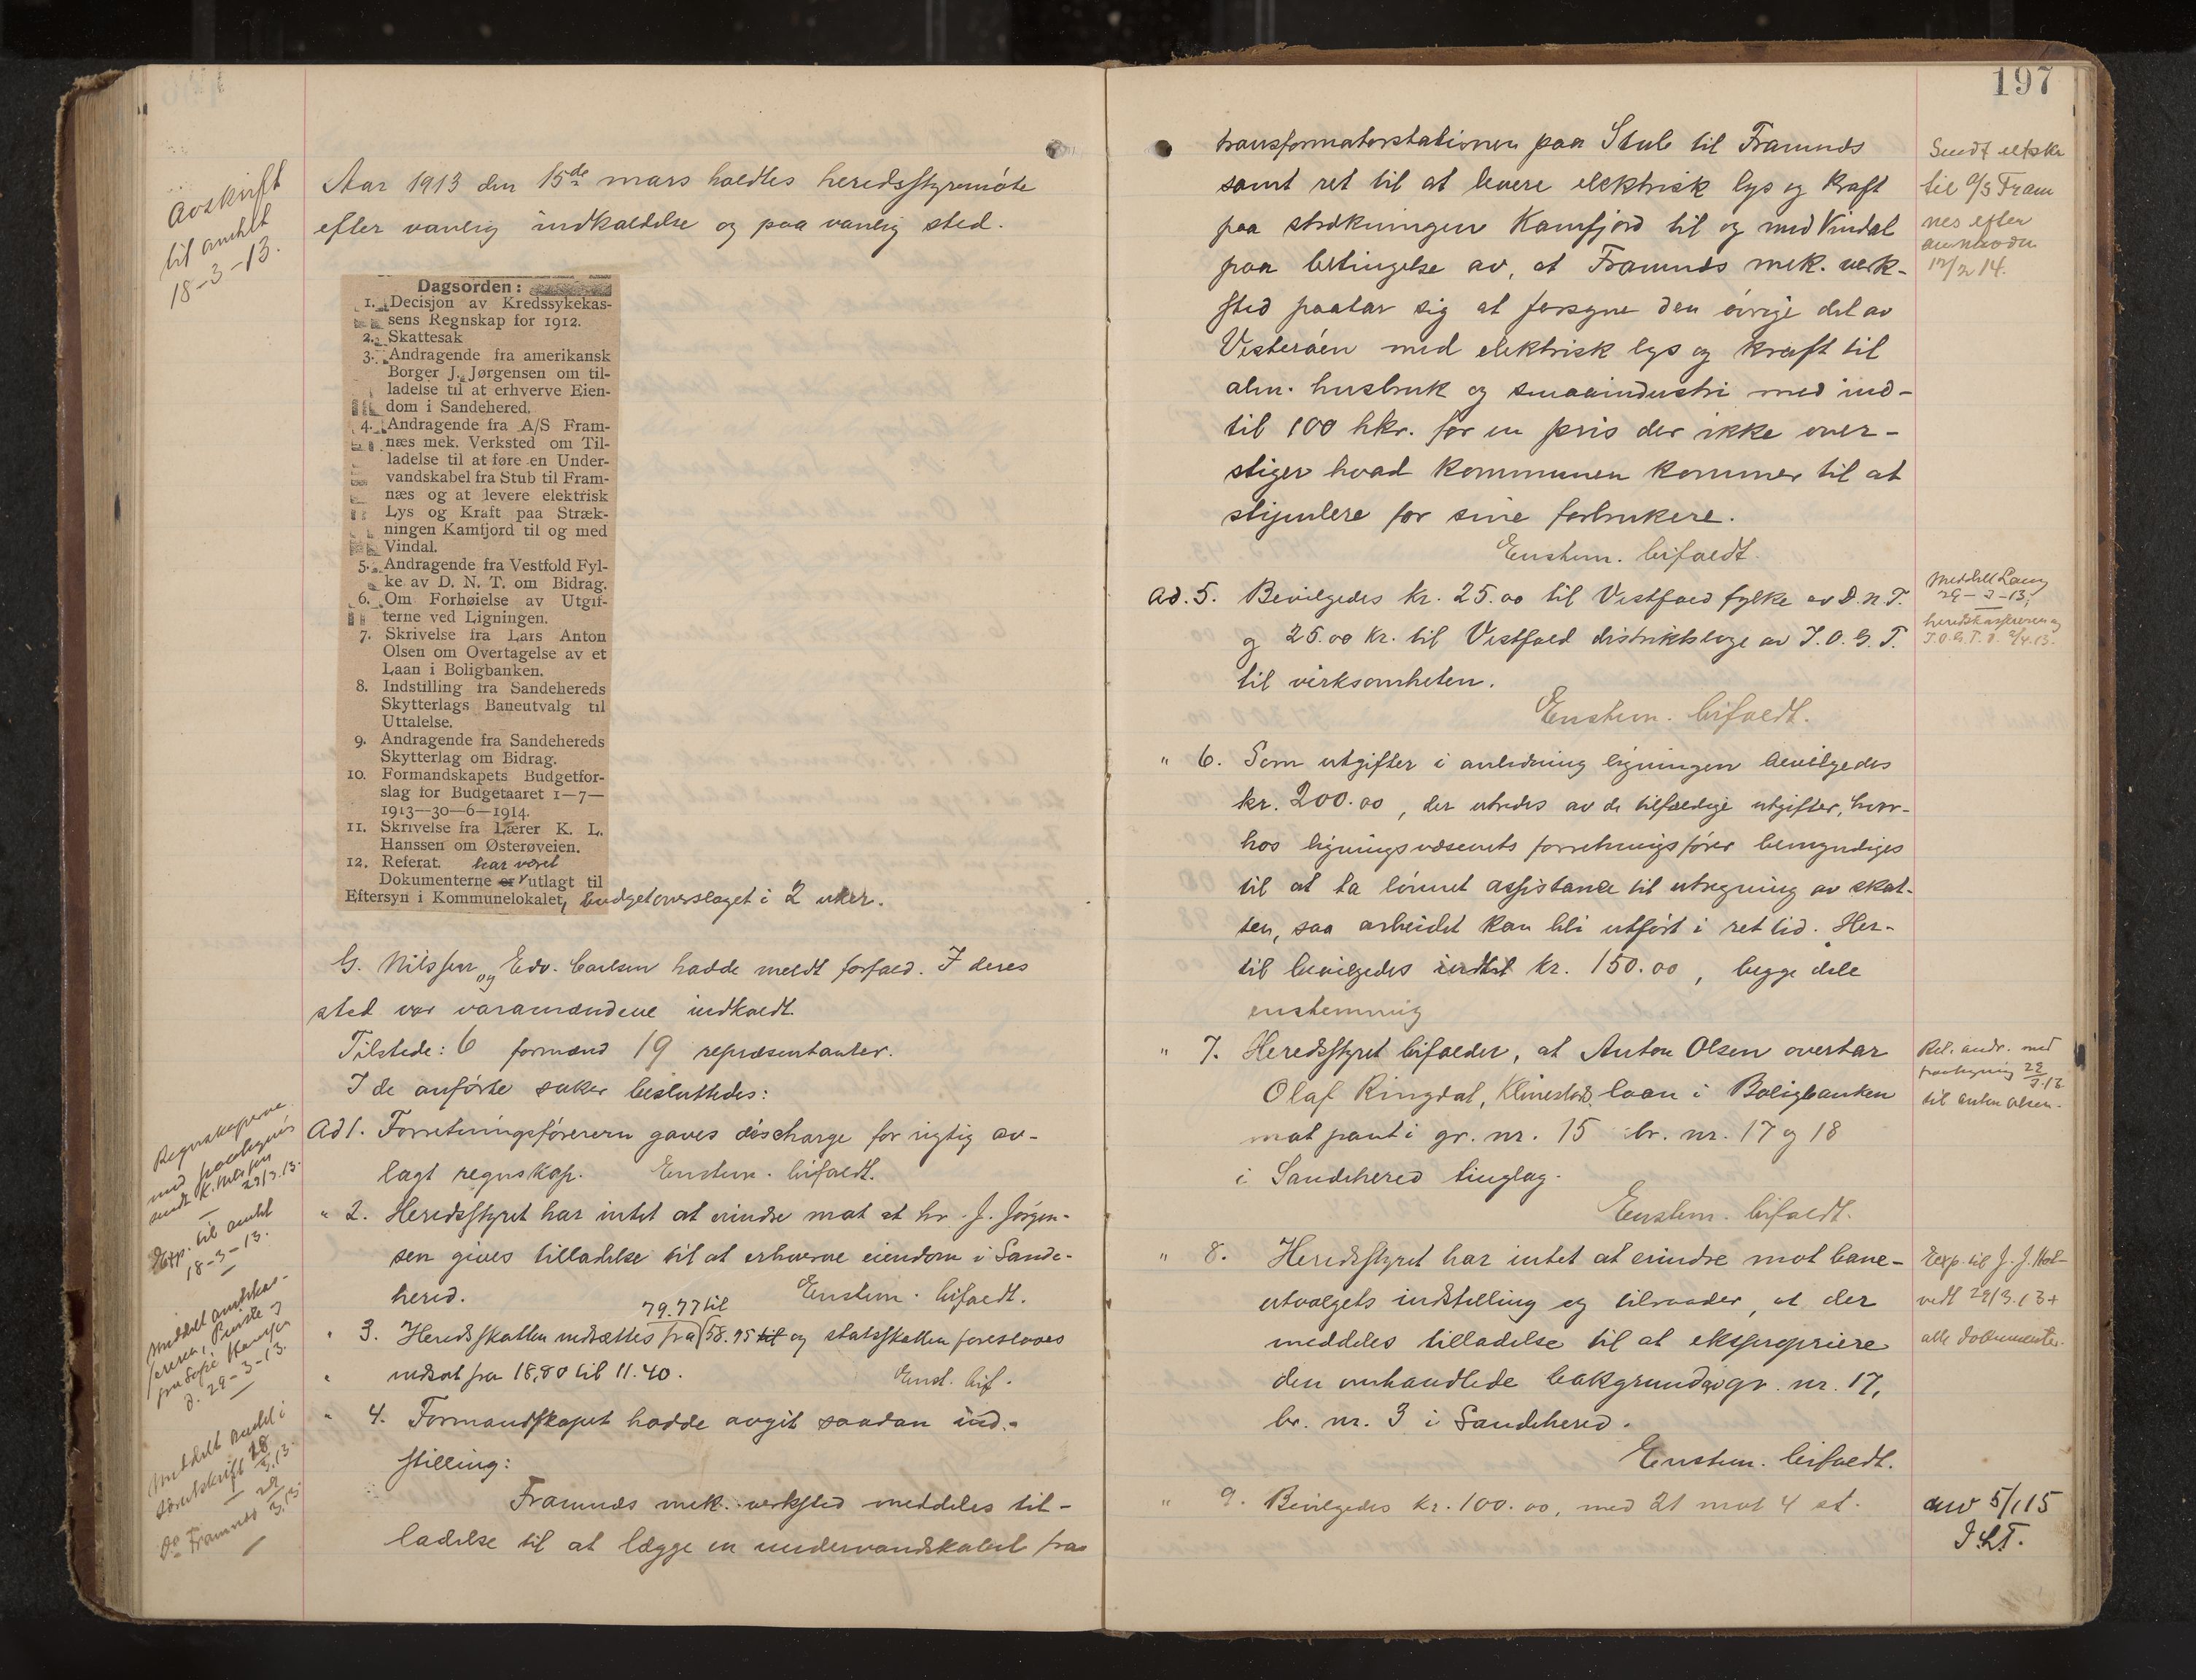 Avskrift
til amtet
18-3-13.
Aar 1913 den 15de mars holdtes heredsstyremöte
efter vanlig indkaldelse og paa vanlig sted.
Dagsorden:
1. Decisjon av Kredssykekas-
sens Regnskap for 1912.
2. Skattesak
3. Andragende fra amerikansk
Borger J. Jørgensen om til-
ladelse til at erhverve Eien-
dom i Sandehered.
4. Andragende fra A/S Fram-
næs mek. Verksted om Til-
ladelse til at føre en Under-
vandskabel fra Stub til Fram-
næs og at levere elektrisk
Lys og Kraft paa Stræk-
ningen Kamfjord til og med
Vindal.
5. Andragende fra Vestfold Fyl-
ke av D. N. T. om Bidrag.
6. Om Forhøielse av Utgif-
terne ved Ligningen.
7. Skrivelse fra Lars Anton
Olsen om Overtagelse av et
Laan i Boligbanken.
8. Indstilling fra Sandehereds
Skytterlags Baneutvalg til
Uttalelse.
9. Andragende fra Sandehereds
Skytterlag om Bidrag.
10. Formandskapets Budgetfor-
slag for Budgetaaret 1—7—
1913—30—6—1914.
11. Skrivelse fra Lærer K. L.
Hanssen om Østerøveien.
12. Referat. har været
Dokumenterne er utlagt til
Eftersyn i Kommunelokalet, budgetoverslaget i 2 uker.
G. Nilssen og Edv. Carlsen hadde meldt forfald. I deres
sted var varamændene indkaldt.
Tilstede: 6 formænd 19 repræsentanter.
I de anförte saker besluttedes:
Regnskaperne
med paategnis
sendt K.
29/3.13.
Ad 1. Forretningsförerern gaves discharge for rigtig av-
lagt regnskap. Enstem. bifaldt.
Exp. til amtet
18-3-13.
" 2. Heredsstyret har intet at erindre mot at hr. J. Jörgen-
sen gives tilladelse til at erhverve eiendom i Sande-
hered. Enstem. bifaldt.
Meddelt amtskas-
sereren,
fru Sofie Hansen
d. 29-3-13.
79.77 til
" 3. Heredsskatten nedsættes fra 58.95 til og statsskatten foreslaaes
nedsat fra 18,80 til 11.40. Enst. bif.
Meddelt amtet i
særutskrift 28/3.13.
Do Framnæs 29/3.13.
" 4. Formandskapet hadde avgit saadan ind-
stilling:
Framnæs mek. verksted meddeles til-
ladelse til at lægge en undervandskabel fra
197
transformatorstationen paa Stub til Framnæs
samt ret til at levere elektrisk lys og kraft
paa strækningen Kamfjord til og med Vindal
paa betingelse av, at Framnæs mek. verk-
sted paatar sig at forsyne den övrige del av
Vesteröen med elektrisk lys og kraft til
alm. husbruk og smaaindustri med ind-
til 100 hkr. for en pris der ikke over-
stiger hvad kommunen kommer til at
stipulere for sine forbrukere.
Enstem. bifaldt.
Sendt utskr
til A/S Fram
nes efter
anmodn
12/2 14.
Ad. 5. Bevilgedes kr. 25.00 til Vestfold fylke av D.N.T.
og 25.00 kr. til Vestfold distriktsloge av I.O.G.T.
til virksomheten.
Enstem. bifaldt.
Meddelt
29-3-13,
heredskassereren og
I.O.G.T. d. 2/4.13.
" 6. Som utgifter i anledning ligningen bevilgedes
kr. 200.00, der utredes av de tilfældige utgifter, hvor-
hos ligningsvæsenets forretningsförer bemyndiges
til at ta lönnet assistance til utregning av skat-
ten, saa arbeidet kan bli utfört i ret tid. Her-
til bevilgedes indtil kr. 150.00, begge dele
enstemmig
" 7. Heredsstyret bifalder, at Anton Olsen overtar
Olaf Ringdal, Klinestad, laan i Boligbanken
mot pant i gr. nr. 15 br. nr. 17 og 18
i Sandehered tinglag.
Enstem. bifaldt.
Ret. andr. med
paategning 29/3.13
til Anton Olsen.
" 8. Heredsstyret har intet at erindre mot bane-
utvalgets indstilling og tilraader, at der
meddeles tilladelse til at ekspropriere
den omhandlede bakgrund av gr. nr. 17,
br. nr. 3 i Sandehered.
Enstem. bifaldt.
Exp. til J. J. Hol-
vedt 29/3.13 +
alle dokumenter.
" 9. Bevilgedes kr. 100.00, med 21 mot 4 st.
anv 5/1 15